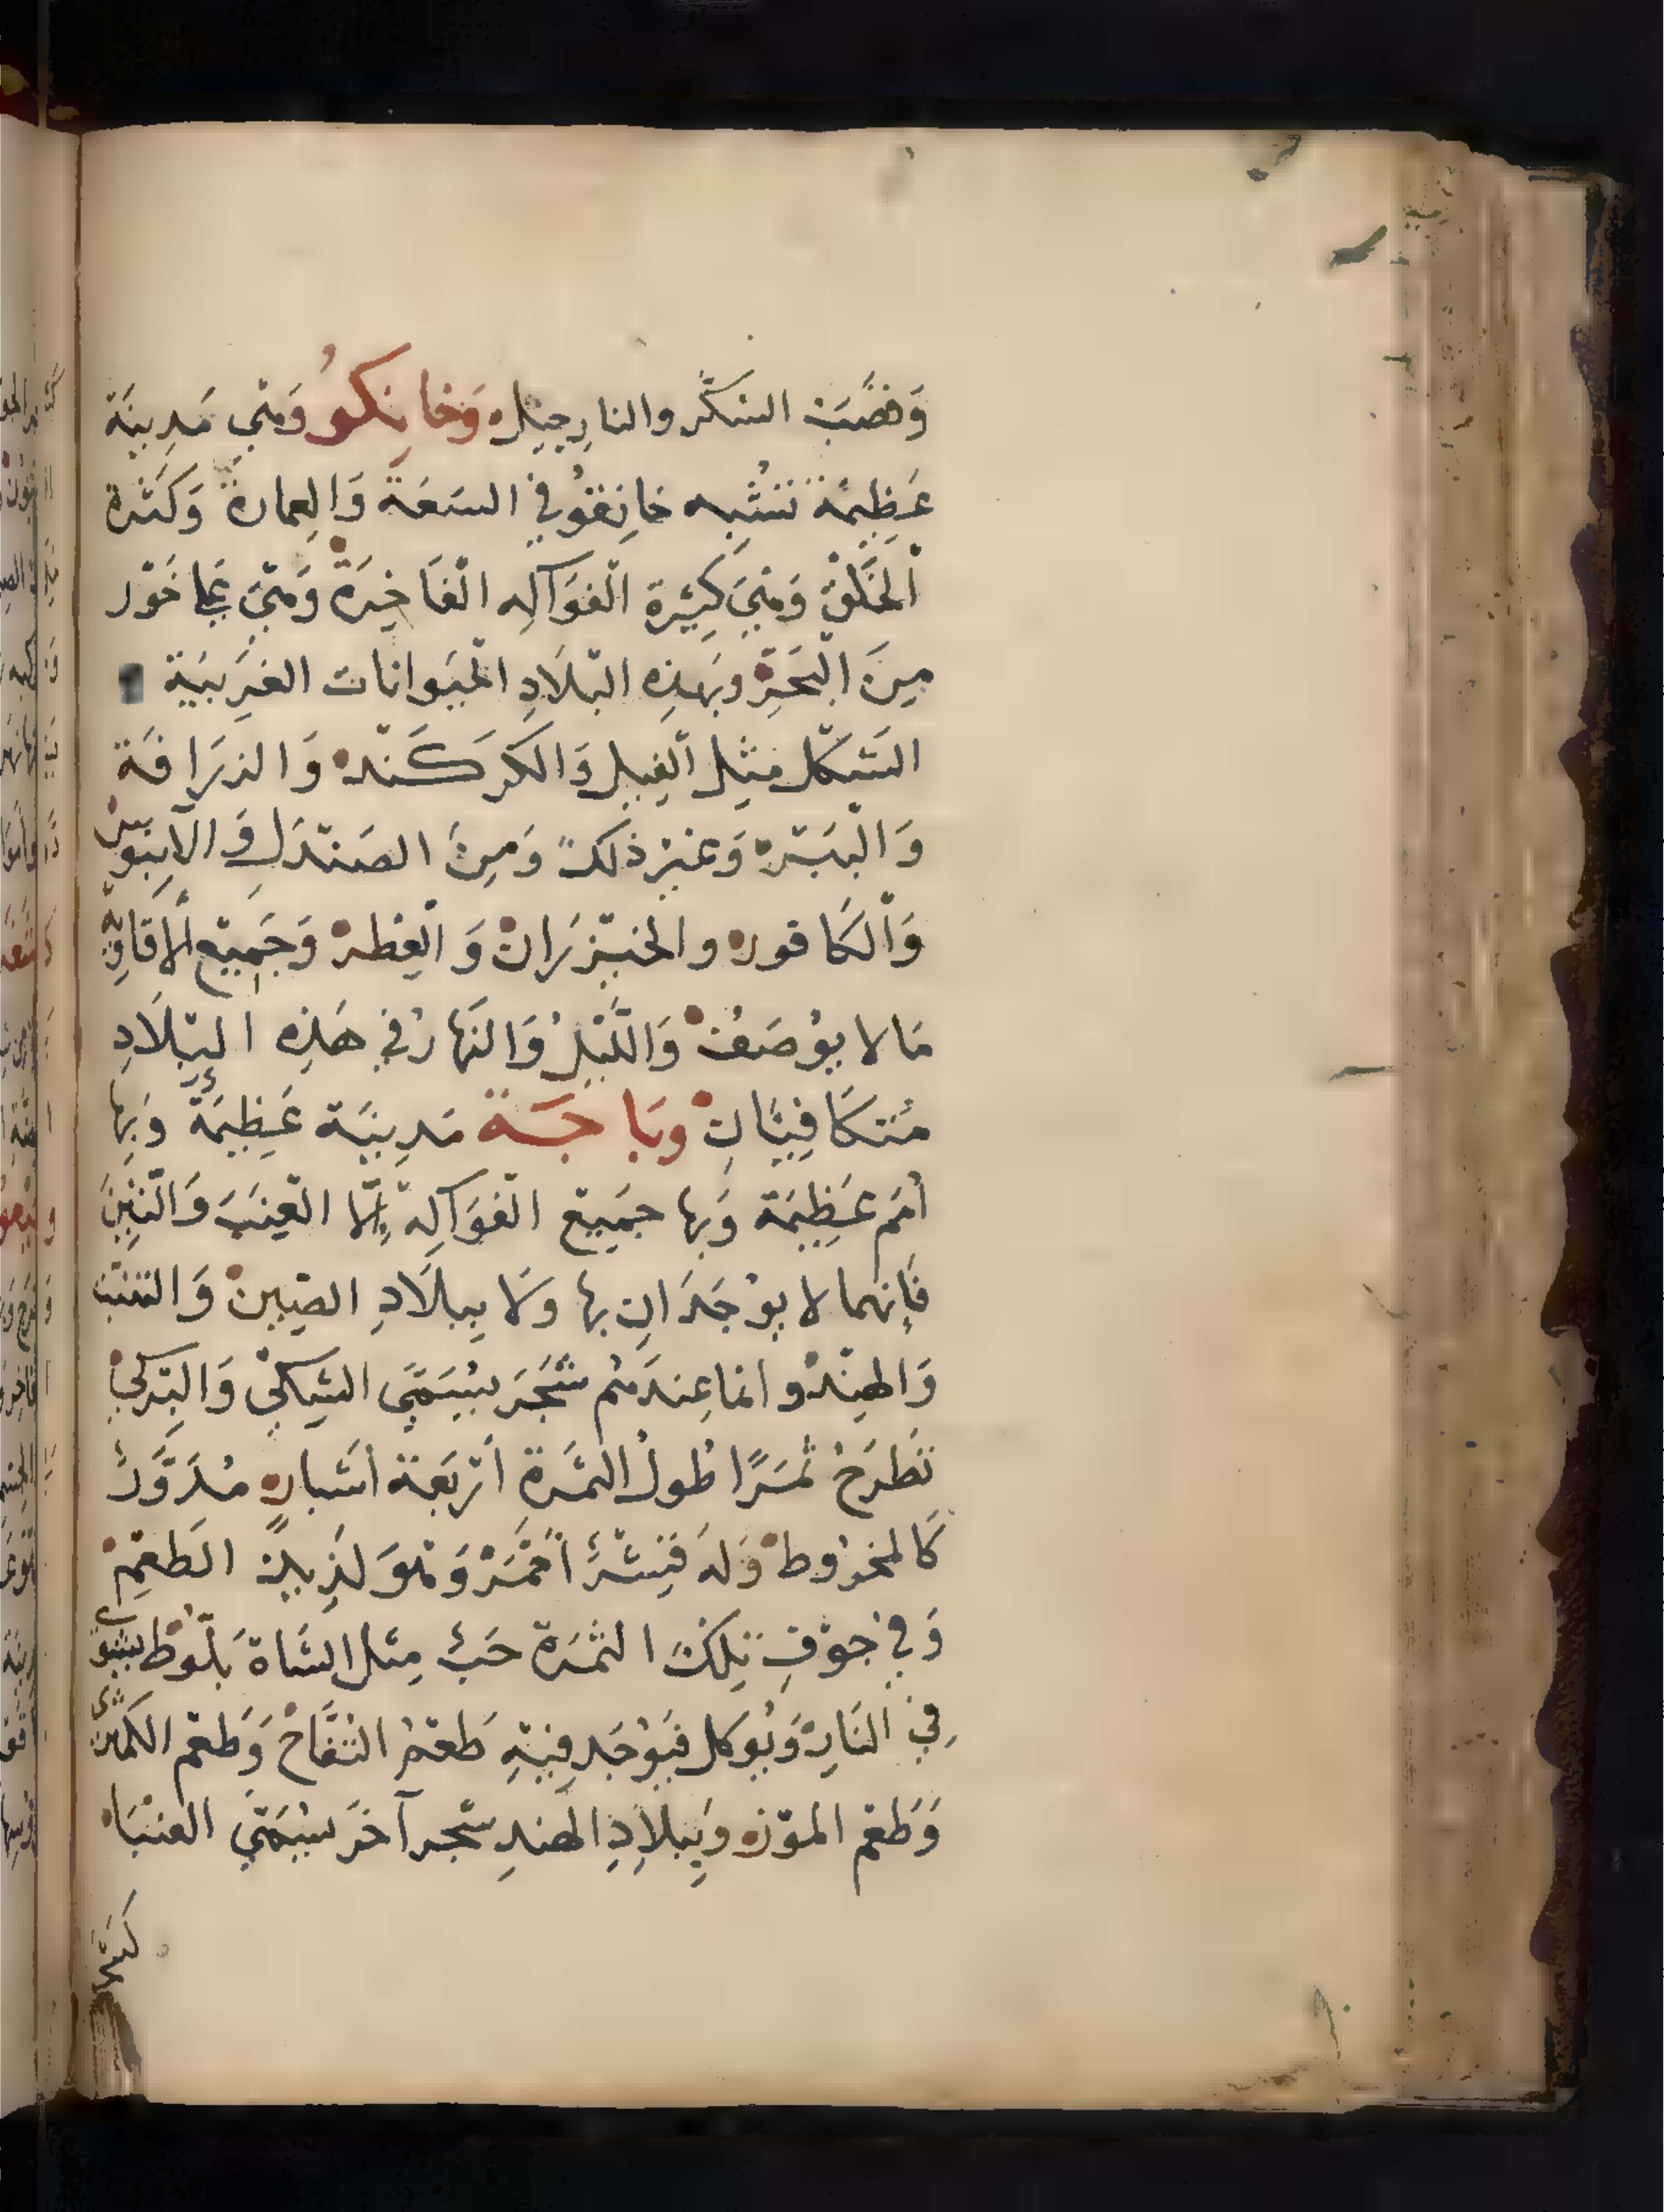 وَقصَبَ السّكَّر والنارِجيل وَخانِكو وَهِيَ مَدِينَة
عَظِيمَة تشبه خانِقُو في السَعَة وَالعِمارة وَكَثرة
اْلخَلْق وَهِيَ كَثِيرة الفوَاكِه الْفَاخِرَة وَهِيَ عَلى خَوْر
مِنَ الْبَحَرِ وبَهذِه البْلَادِ الحْيَوانات الغَرِيبَة
الشَكْل مثِل الْفِيل وَالكَركَنْد وَالزرَافَة
وَالْبَبْر وَغير ذلكَ وَمِنَ الصَنْدَل وَالآبنوس
وَاْلكَافور والخيْزرَان وَالْعِطر وَجَمِيع الافَاوِيه
مَا لا يوُصَفُ وَاللَّيْل وَالنَهارْ في هَذِه البْلَادِ
مُتكَافِيَانِ وبَاجَة مَدِينَة عَظِيمَة وَبِها
أمَم عَظِيمَة وَبها جَمِيع الفوَاكِه إلّا العِنَبَ وَالتِينَ
فَإنهما لا يوْجَدَانِ بها وَلا بِبلَادِ الصِين وَالتبت
وَالهِنْد وانما عِندَهُم شَجَر يُسَمَّى الشِكي وَالبركي
تَطرَحْ ثمَرًا طُولُ الثمَرَة أرْبَعَة أشبار مُدَوَّرٌ
كَالمخرُوط وَلهَ قِشْرٌ أحْمَرْ وَهوَ لَذِيذ الطَعْمِ
وَفي جوْفِ تِلكَ الثمَرَة حَبٌ مِثل الشَاة بَلّوط يشوى
فِي النَارِ وَيُوكل فيَوُجَد فِيهِ طَعْمُ التفَّاحْ وَطَعْم الكمثرى
وَطَعْم الموْز وَبِبلاِدِ الهندِ شجر آخَر يُسَمَّى العنْبَا